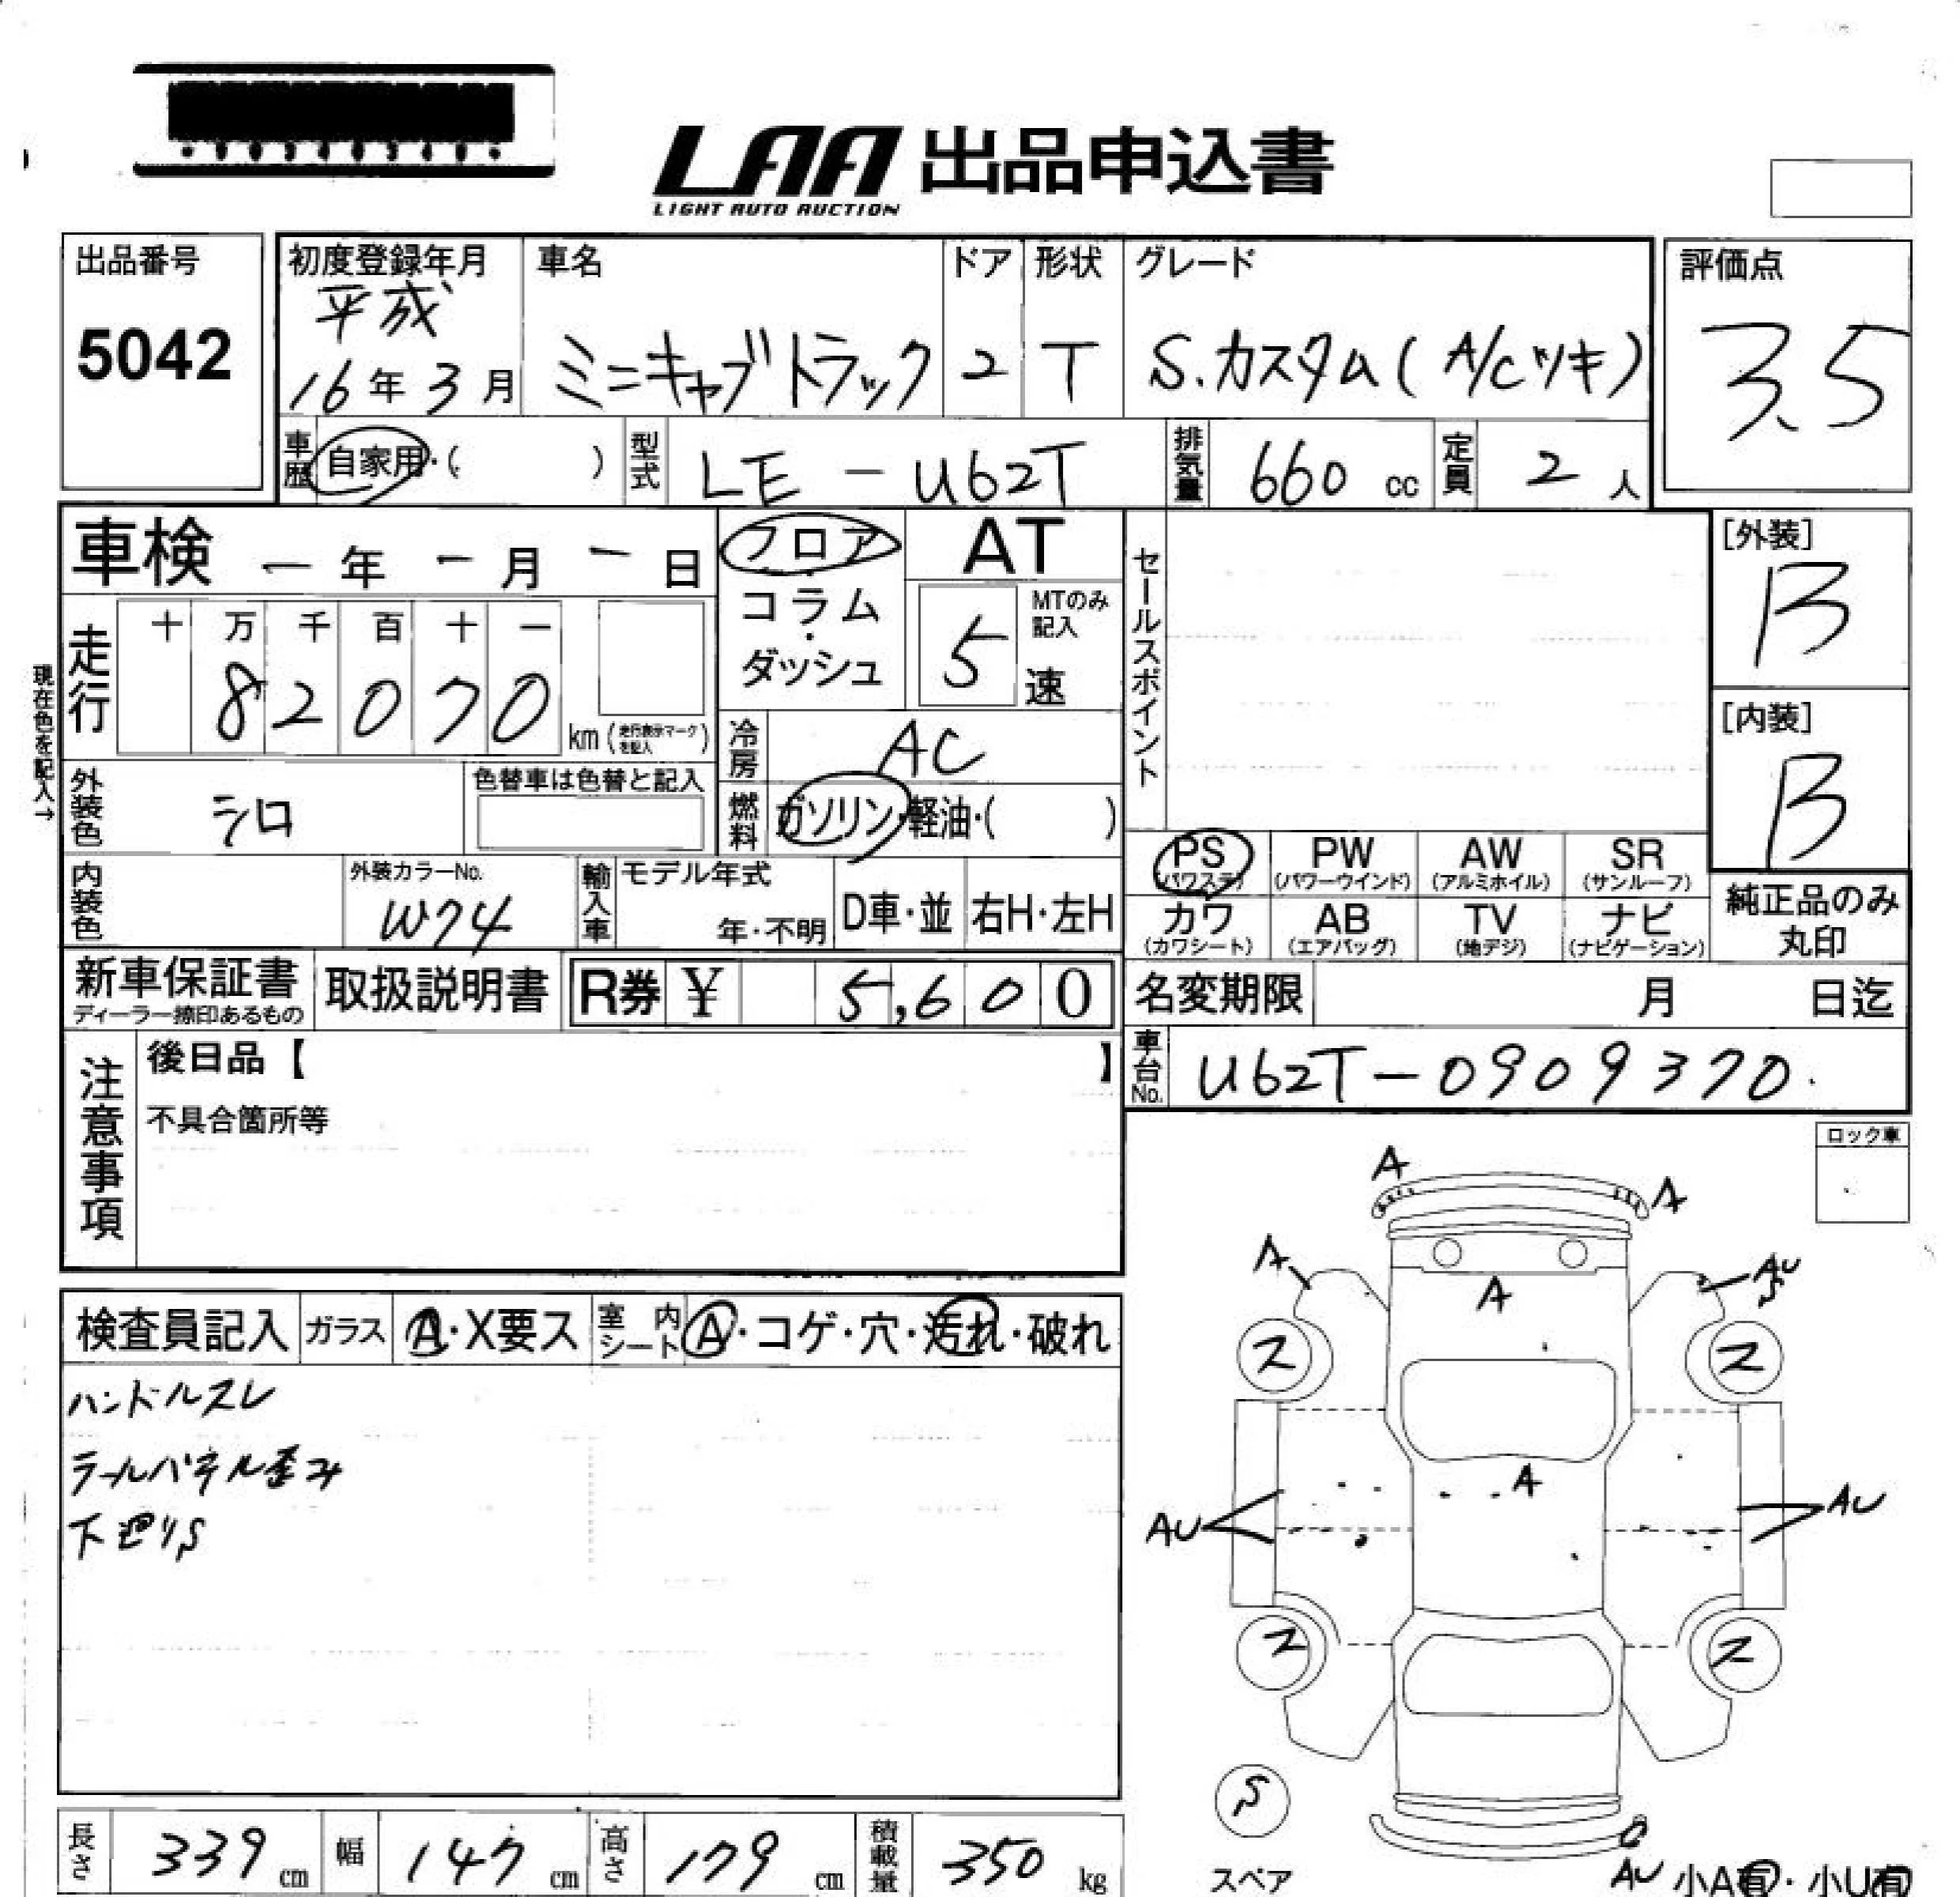 LAA 出品申込書
LIGHT AUTO AUCTION
出品番号
5042
初度登録年月
平成
16年3月
車名
ミニキャブトラック
ドア
2
形状
T
グレード
S.カスタム(A/Cツキ)
評価点
3.5
車歴
自家用・( )
型式
LE-U62T
排気量
660 cc
定員
2人
車検 ー年 ー月 ー日
フロア
コラム
・
ダッシュ
AT
5
MTのみ
記入
速
セールスポイント
[外装]
B
[内装]
B
現在色を記入→
走行
十 万 千 百 十 一
8 2 0 7 0
km(走行表示マークを記入)
冷房
AC
外装色
シロ
色替車は色替と記入
燃料
ガソリン・軽油・( )
PS
(パワステ)
PW
(パワーウインド)
AW
(アルミホイル)
SR
(サンルーフ)
カワ
(カワシート)
AB
(エアバッグ)
TV
(地デジ)
ナビ
(ナビゲーション)
純正品のみ
丸印
内装色
外装カラーNo.
W74
輸入車
モデル年式
年・不明
D車・並
右H・左H
新車保証書
ディーラー捺印あるもの
取扱説明書
R券 ¥ 5,600
名変期限 月 日迄
車台No.
U62T-0909370.
注意事項
後日品【 】
不具合箇所等
ロック車
検査員記入
ガラス
A・X要ス
室内
シート
A・コゲ・穴・汚れ・破れ
ハンドルスレ
テールパネル歪み
下廻りS
A
A
A
AU
S
A
ス
ス
A
AU
AU
ス
ス
S
スペア
AU
小A有・小U有
長さ
339 cm
幅
147 cm
高さ
179 cm
積載量
350 kg